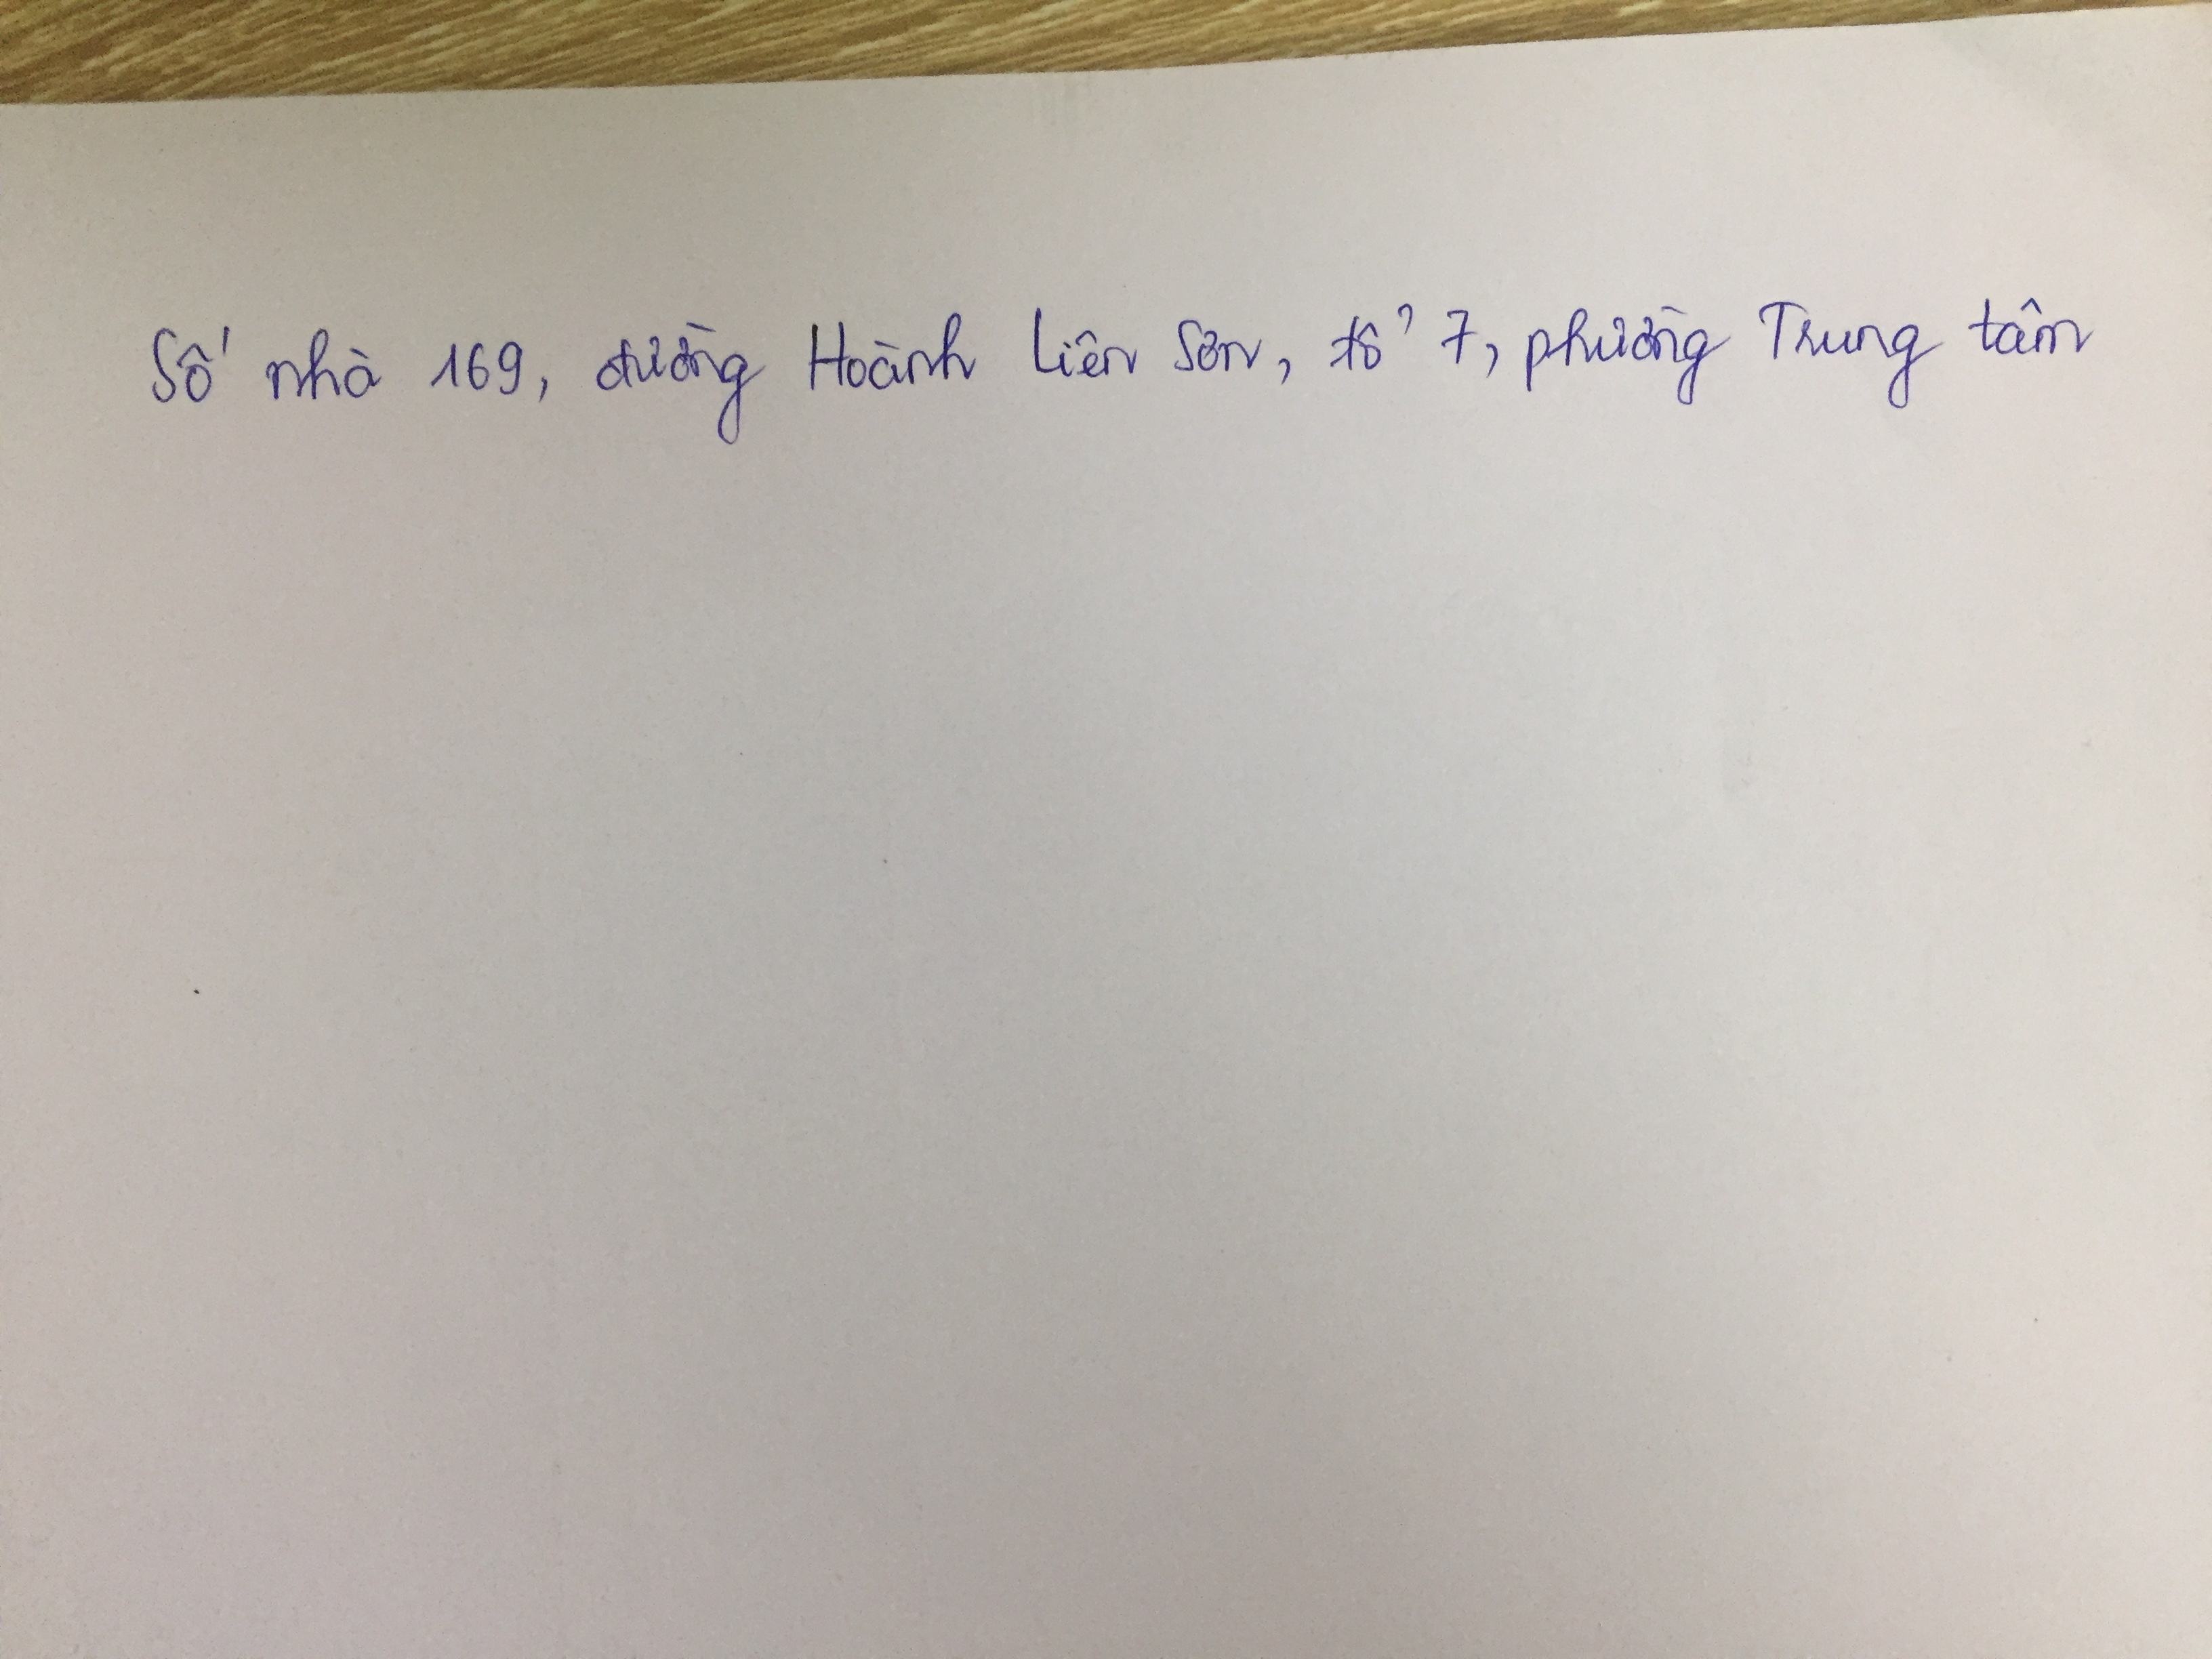 Số nhà 169, đường Hoành Liên Sơn, tổ 7, phường Trung tâm